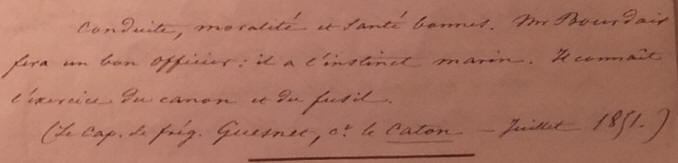 Conduite, moralité et santé bonnes. Mr Bourdais
fera un bon officier : il a l'instinct marin. Il connaît
l'exercice du canon et du fusil.
(Le Cap. de frég. Guesnet, ct. le Caton — Juillet 1851.)